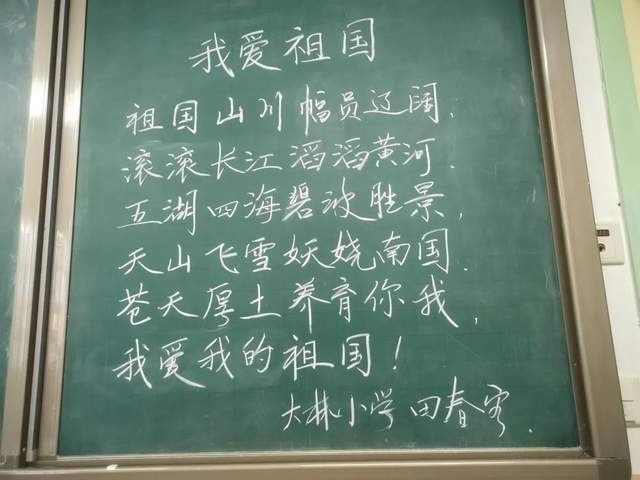 我爱祖国
祖国山川幅员辽阔，
滚滚长江滔滔黄河．
五湖四海碧波胜景，
天山飞雪妖娆南国．
苍天厚土养育你我，
我爱我的祖国！
大林小学 田春客．